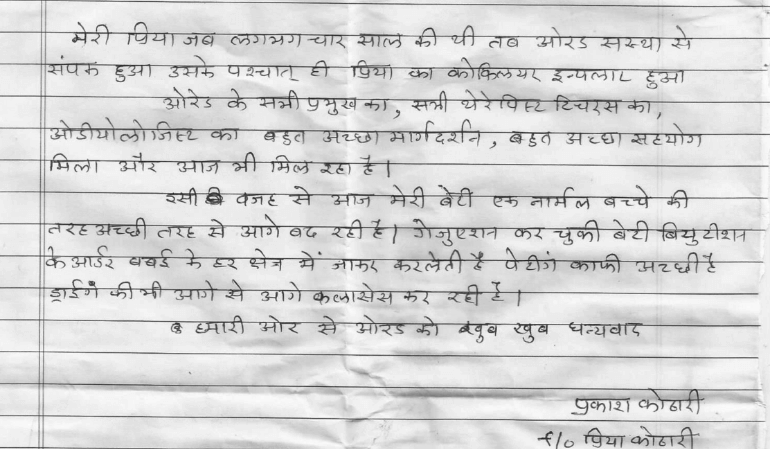 मेरी प्रिया जब लगभग चार साल की थी तब ओरेड सस्था से
संपर्क हुआ उसके पश्चात् ही प्रिया का कोकिलयर इन्पलाट हुआ
ओरेड के सभी प्रमुख का, सभी थेरेपिस्ट टिचरस का,
ओडीयोलोजिस्ट का बहुत अच्छा मार्गदर्शन, बहुत अच्छा सहयोग
मिला और आज भी मिल रहा है।
इसी वजह से आज मेरी बेटी एक नार्मल बच्चे की
तरह अच्छी तरह से आगे बढ रही है। ग्रेजुएशन कर चुकी बेटी बियुटीशन
के आर्डर बंबई के हर क्षेत्र में जाकर करलेती है पेटींग काफी अच्छी है
ड्राईंग की भी आगे से आगे कलासेस कर रही है।
हमारी ओर से ओरेड को खुब खुब धन्यवाद
प्रकाश कोठारी
f/o प्रिया कोठारी